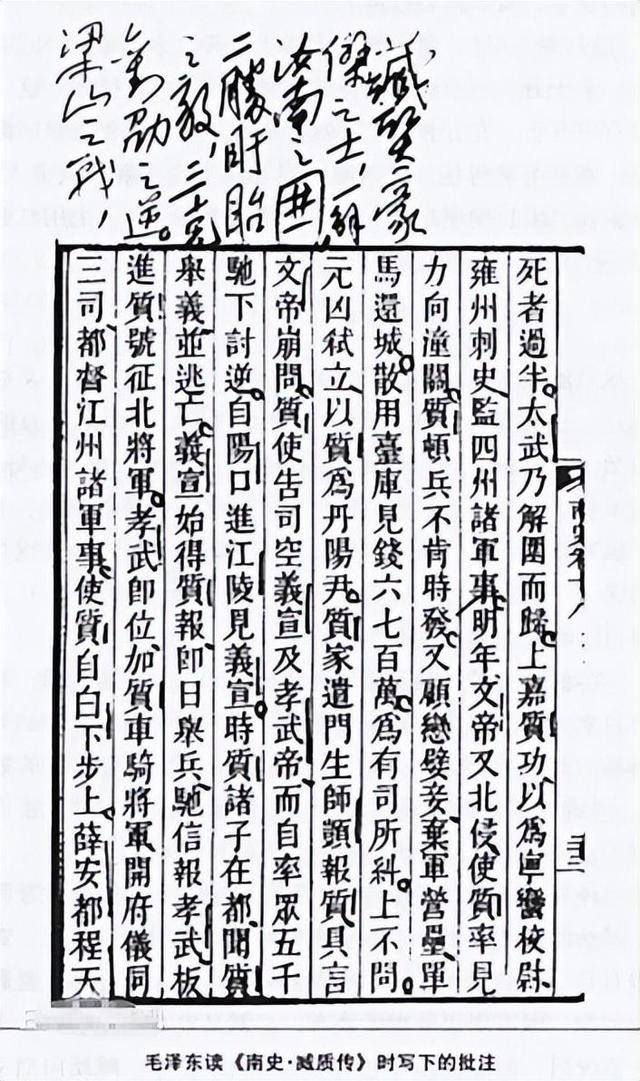 臧质豪
傑之士,一解
汝南之围,
二勝盱眙
之敌,三克
刘劭之逆。
梁山之战
死者過半太武乃解圍而歸上嘉質功以爲寧蠻校尉
雍州刺史監四州諸軍事明年文帝又北侵使質率見
力向潼關質頓兵不肯時發又顧戀嬖妾棄軍營壘單
馬還城散用臺庫見錢六七百萬爲有司所糾上不問
元凶弑立以質爲丹陽尹質家遣門生師顗報質具言
文帝崩問質使告司空義宣及孝武帝而自率眾五千
馳下討逆自陽口進江陵見義宣時質諸子在都聞質
舉義並逃亡義宣始得質報即日舉兵馳信報孝武板
進質號征北將軍孝武即位加質車騎將軍開府儀同
三司都督江州諸軍事使質自白下步上薛安都程天
毛泽东读《南史·臧质传》时写下的批注